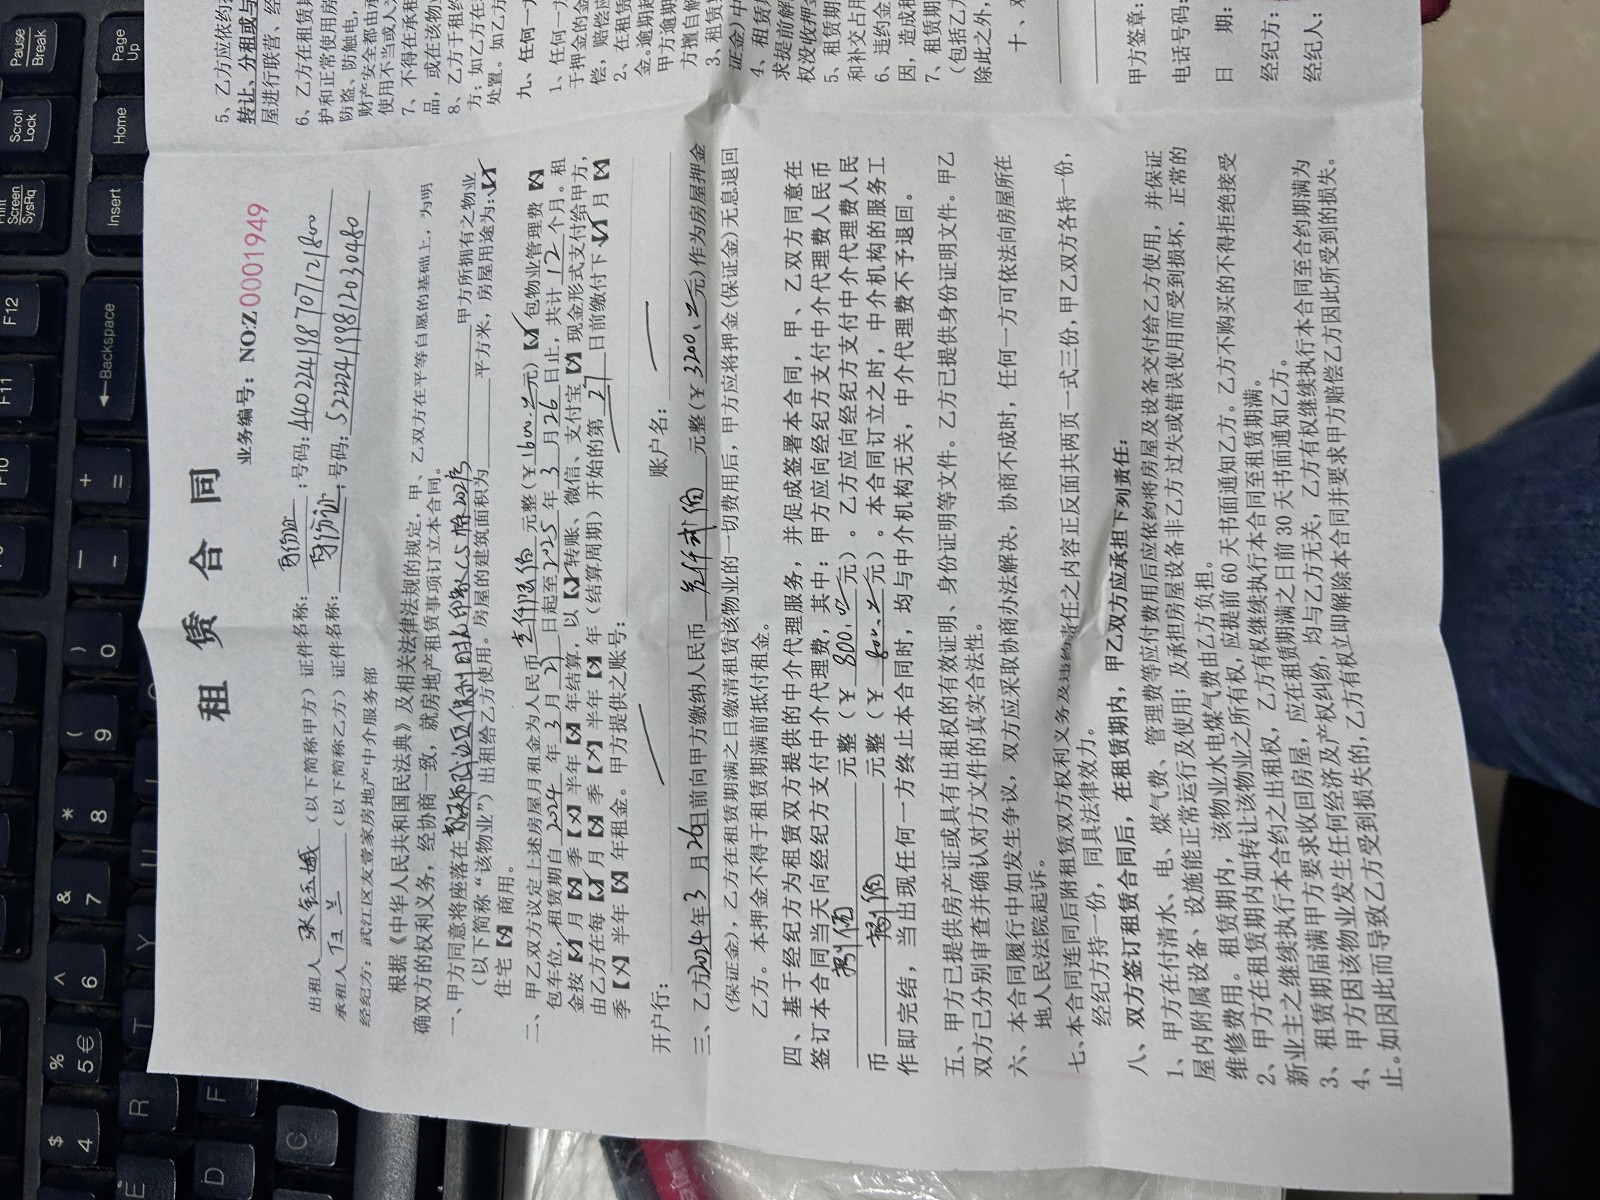 租赁合同
业务编号：NO:Z0001949
出租人 （以下简称甲方）证件名称：身份证；号码：440224198707121800
承租人 伍兰 （以下简称乙方）证件名称：身份证；号码：522224199812030480
经纪方：武江区友壹家房地产中介服务部
根据《中华人民共和国民法典》及相关法律法规的规定，甲、乙双方在平等自愿的基础上，为明
确双方的权利义务，经协商一致，就房地产租赁事项订立本合同。
一、甲方同意将座落在 甲方所拥有之物业
（以下简称“该物业”）出租给乙方使用。房屋的建筑面积为 平方米，房屋用途为:【✓】
住宅【×】商用。
二、甲乙双方议定上述房屋月租金为人民币 壹仟陆佰 元整(￥1600.元)【✓】包物业管理费【×】
包车位，租赁期自 2024 年 3 月 27 日起至 2025 年 3 月 26 日止，共计 12 个月。租
金按【✓】月【×】季【×】半年【×】年结算，以【✓】转账、微信、支付宝【×】现金形式支付给甲方，
由乙方在每【✓】月【×】季【×】半年【×】年（结算周期）开始的第 27 日前缴付下【✓】月【×】
季【×】半年【×】年租金。甲方提供之账号：
开户行： 账户名：
三、乙方2024年3月26日前向甲方缴纳人民币 壹仟贰佰 元整(￥3200.元)作为房屋押金
（保证金），乙方在租赁期满之日缴清租赁该物业的一切费用后，甲方应将押金(保证金)无息退回
乙方。本押金不得于租赁期满前抵付租金。
四、基于经纪方为租赁双方提供的中介代理服务，并促成签署本合同，甲、乙双方同意在
签订本合同当天向经纪方支付中介代理费，其中：甲方应向经纪方支付中介代理费人民币
捌佰 元整（￥800.元）。乙方应向经纪方支付中介代理费人民
币 捌佰 元整（￥800.元）。本合同订立之时，中介机构的服务工
作即完结，当出现任何一方终止本合同时，均与中介机构无关，中介代理费不予退回。
五、甲方已提供房产证或具有出租权的有效证明、身份证明等文件。乙方已提供身份证明文件。甲乙
双方已分别审查并确认对方文件的真实合法性。
六、本合同履行中如发生争议，双方应采取协商办法解决，协商不成时，任何一方可依法向房屋所在
地人民法院起诉。
七、本合同连同后附租赁双方权利义务及违约责任之内容正反面共两页一式三份，甲乙双方各持一份，
经纪方持一份，同具法律效力。
八、双方签订租赁合同后，在租赁期内，甲乙双方应承担下列责任：
1、甲方在付清水、电、煤气费、管理费等应付费用后应依约将房屋及设备交付给乙方使用，并保证
屋内附属设备、设施能正常运行及使用；及承担房屋设备非乙方过失或错误使用而受到损坏，正常的
维修费用。租赁期内，该物业水电煤气费由乙方负担。
2、甲方在租赁期内如转让该物业之所有权，应提前 60 天书面通知乙方。乙方不购买的不得拒绝接受
新业主之继续执行本合约之出租权，乙方有权继续执行本合同至租赁期满。
3、租赁期届满甲方要求收回房屋，应在租赁期满之日前 30 天书面通知乙方。
4、甲方因该物业发生任何经济及产权纠纷，均与乙方无关，乙方有权继续执行本合同至合约期满为
止。如因此而导致乙方受到损失的，乙方有权立即解除本合同并要求甲方赔偿乙方因此所受到的损失。
5、乙方应依约
转让、分租或与
屋进行联营、经
6、乙方在租赁期
护和正常使用房
防盗、防触电、
财产安全都由承
使用不当或人为
7、不得在承租
品，或在该物业
8、乙方于租约
方；如乙方在
处置。如乙方
九、任何一方
1、任何一方
于押金的金
偿，赔偿应
2、在租赁
金。逾期超
甲方逾期
方擅自解
3、租赁期
证金）中
4、租赁期
求提前解
权没收押金
5、租赁期
和补交占用
6、违约金
因，造成租
7、租赁期
（包括乙方
除此之外，
十、
甲方签章：
电话号码：
日 期：
经纪方：
经纪人：
Pause
Break
Page
Up
Scroll
Lock
Home
Print
Screen
SysRq
Insert
F12
F11
F10
Backspace
+
=
—
-
)
0
(
9
*
8
&
7
^
6
%
5 €
$
4
U
Y
T
R
E
F
D
C